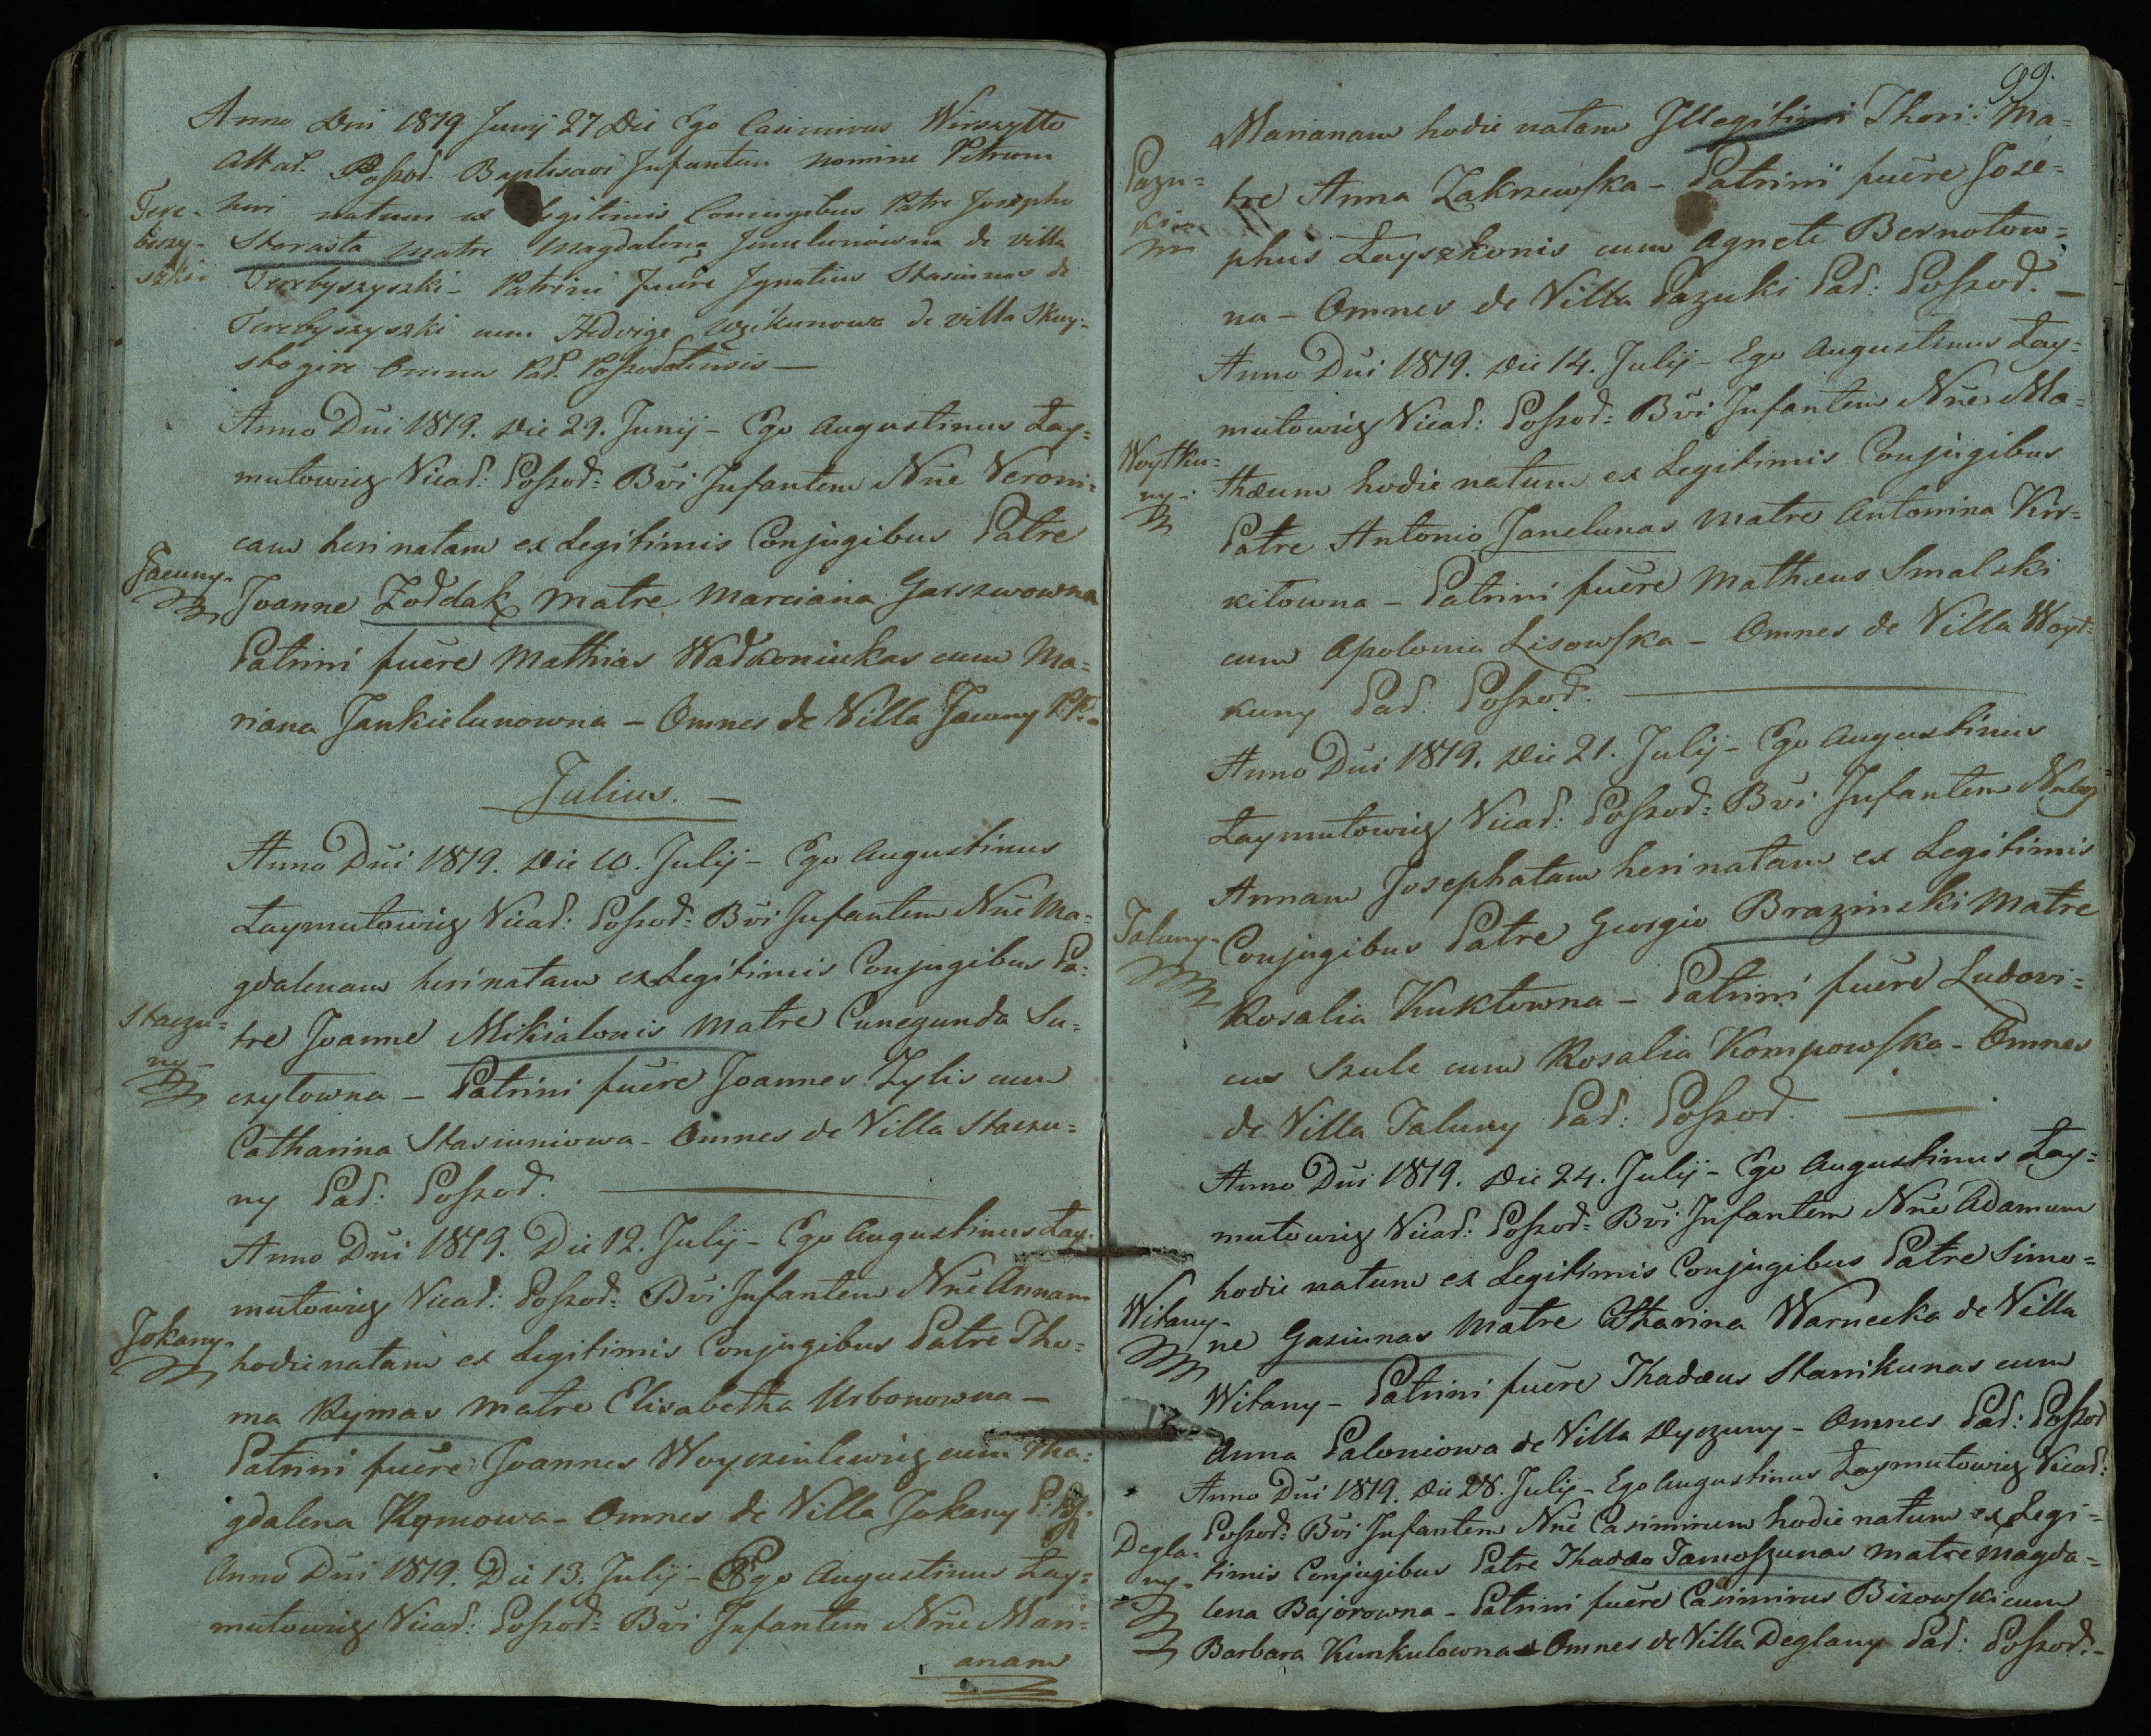 Anno Dni 1819 Junij 27 Die Ego Casimirus Wirszyłło
Altad. Poszod. Baptisavi Infantem nomine Petrum
Tere-
biszy-
szki
heri natum ex Legitimis Coniugibus Patre Josepho
Starasta matre Magdalena Janulunówna de villa
Terebyszyszki - Patrini fuere Ignatius Stasiunas de
Terebyszyszki cum Hedvige de villa
Omnes Pad. Poszodotensis —
Anno Dñi 1819. Die 29. Junij - Ego Augustinus Łay=
mutowicz Vicad: Poszod= Bvi Infantem Nñe Veroni=
cam heri natam ex Legitimis Conjugibus Patre
Jacuny-
Joanne Zołdak matre Marciana Gasszwowna
Patrini fuere Mathias Wadkoniukas cum Ma=
riana Jankielunowna - Omnes de Villa Jacuny P.P.
Julius. —
Anno Dñi 1819. Die 10. Julij - Ego Augustinus
Łaymutowicz Vicad: Poszod= Bvi Infantem Nñe Ma=
gdalenam heri natam ex Legitimis Conjugibus Pa=
Staczu=
ny-
tre Joanne Mikialonis Matre Cunegunda Su=
czytowna - Patrini fuere Joannes Zylis cum
Catharina Stasiuniowa - Omnes de Villa Staczu=
ny Pad: Poszod. —
Anno Dñi 1819. Die 12. Julij - Ego Augustinus Łay-
mutowicz Vicad: Poszod= Bvi Infantem Nñe Annam
Jokany-
hodie natam ex Legitimis Conjugibus Patre Tho=
ma Rymas matre Elisabetha Urbonowna —
Patrini fuere Joannes Woyszulewicz cum Ma=
gdalena Rymowa - Omnes de Villa Jokany P: Pos:
Anno Dñi 1819. Die 13. Julij - Ego Augustinus Łay=
mutowicz Vicad: Poszod= Bvi Infantem Nñe Mari=
anam
99.
Marianam hodie natam Illegitimi Thori: Ma=
Pazu=
ki-
tre Anna Zakrzewska - Patrinï fuere Jose=
phus Łayszkonis cum Agnete Bernotow=
na - Omnes de Villa Pazuki Pad: Poszod. —
Anno Dñi 1819. Die 14. Julij - Ego Augustinus Łay=
mutowicz Vicad: Poszod= Bvi Infantem Nñe Ma=
Woytku=
ny-
thæum hodie natum ex Legitimis Conjugibus
Patre Antonio Janelunas matre Antonina Kir=
kitowna - Patrini fuere Mathæus Smalski
cum Apolonia Lisowska - Omnes de Villa Woyt=
kuny Pad: Poszod. —
Anno Dñi 1819. Die 21. Julij - Ego Augustinus
Łaymutowicz Vicad: Poszod= Bvi Infantem
Annam Josephatam heri natam ex Legitimis
Taluny-
Conjugibus Patre Georgio Brazinski Matre
Rosalia Kuktowna - Patrini fuere Ludovi=
cus Szule cum Rosalia Kompowska - Omnes
de Villa Taluny Pad: Poszod. —
Anno Dñi 1819. Die 24. Julij - Ego Augustinus Łay=
mutowicz Vicad: Poszod= Bvi Infantem Nñe Adamum
hodie natum ex Legitimis Conjugibus Patre Simo=
Witany-
ne Gasiunas Matre Catharina Warnecka de Villa
Witany - Patrini fuere Thadæus Stanikunas cum
Anna Paloniowa de Villa Dyczuny - Omnes Pad: Poszod
Anno Dñi 1819. Die 28. Julij - Ego Augustinus Łaymutowicz Vicad:
Poszod= Bvi Infantem Nñe Casimirum hodie natum ex Legi=
Degla-
ny-
timis Conjugibus Patre Thadæo Tamoszunas matre Magda=
lena Bajorowna - Patrini fuere Casimirus Bizowski cum
Barbara Kunkulowna - Omnes de Villa Deglany Pad: Poszod. -